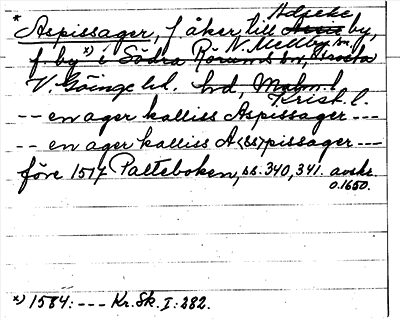 * Aspissager, f. åker, till Adseke by,
f. by *) i Södra Rörums sn, N. Mellby sn,
V. Göinge hd, Krist. l.
-- en ager kalliss Aspissager ---
-- en ager kalliss A<ss>pissager ---
före 1517 Palteboken, ss. 340, 341. avskr.
o. 1650.
*) 1584: --- Kr. Sk. I: 282.